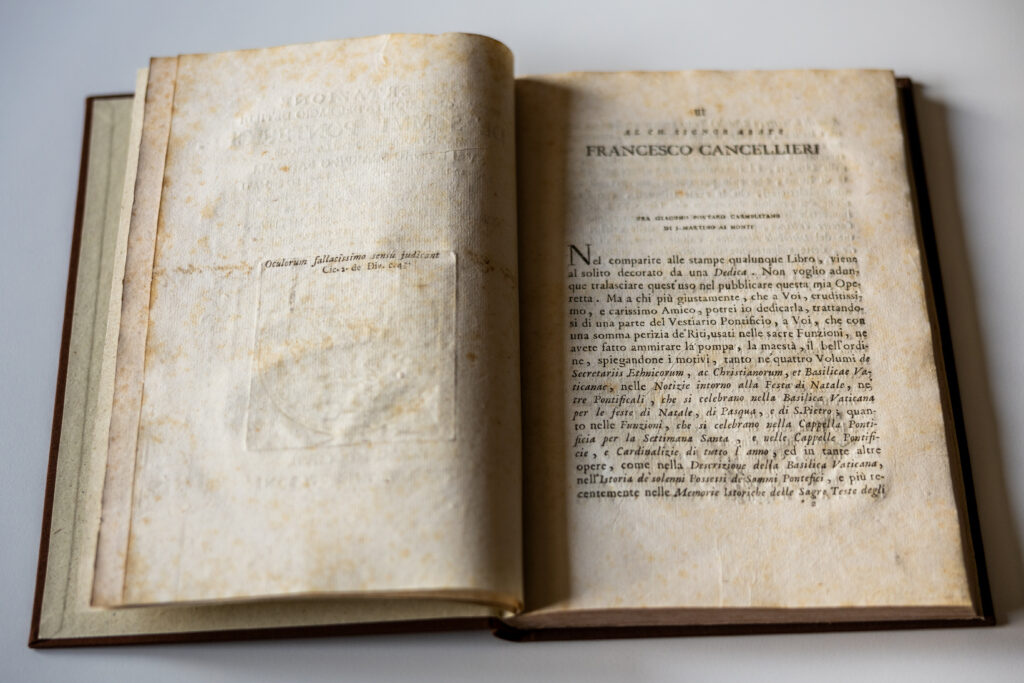 Oculorum fallacissimo sensu judicant
Cic. 2. de Div. c. 43.
III
AL CH. SIGNOR ABATE
FRANCESCO CANCELLIERI
FRA GIACOMO POUYARD CARMELITANO
DI S. MARTINO AI MONTI
Nel comparire alle stampe qualunque Libro, viene
al solito decorato da una Dedica. Non voglio adun-
que tralasciare quest'uso nel pubblicare questa mia Ope-
retta. Ma a chi più giustamente, che a Voi, eruditissi-
mo, e carissimo Amico, potrei io dedicarla, trattando-
si di una parte del Vestiario Pontificio, a Voi, che con
una somma perizia de'Riti, usati nelle sacre Funzioni, ne
avete fatto ammirare la pompa, la maestà, il bell'ordi-
ne, spiegandone i motivi, tanto ne'quattro Volumi de
Secretariis Ethnicorum, ac Christianorum, et Basilicae Va-
ticanae, nelle Notizie intorno alla Festa di Natale, ne'
tre Pontificali, che si celebrano nella Basilica Vaticana
per le feste di Natale, di Pasqua, e di S. Pietro; quan-
to nelle Funzioni, che si celebrano nella Cappella Ponti-
ficia per la Settimana Santa, e nelle Cappelle Pontifi-
cie, e Cardinalizie di tutto l'anno, ed in tante altre
opere, come nella Descrizione della Basilica Vaticana,
nell'Istoria de'solenni Possessi de'Sommi Pontefici, e più re-
centemente nelle Memorie Istoriche delle Sagre Teste degli